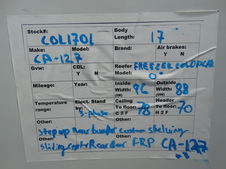 Stock#: Body Length: 17
COL1701
Make: Model: Brand: Air brakes?
CA-127 Y N
Gvw: CDL: Reefer Model: FREEZER COLDPLATE
Y N 0°
Mileage: Year: Inside Width 96 Outside Width 88
Temperature range: Elect. Stand by Ceiling Headr/floor
3-phase C 3 F 78 H 2 F 70
Other:
step up rear bumper custom shelving
Other:
sliding center Rear door FRP CA-127
Other: